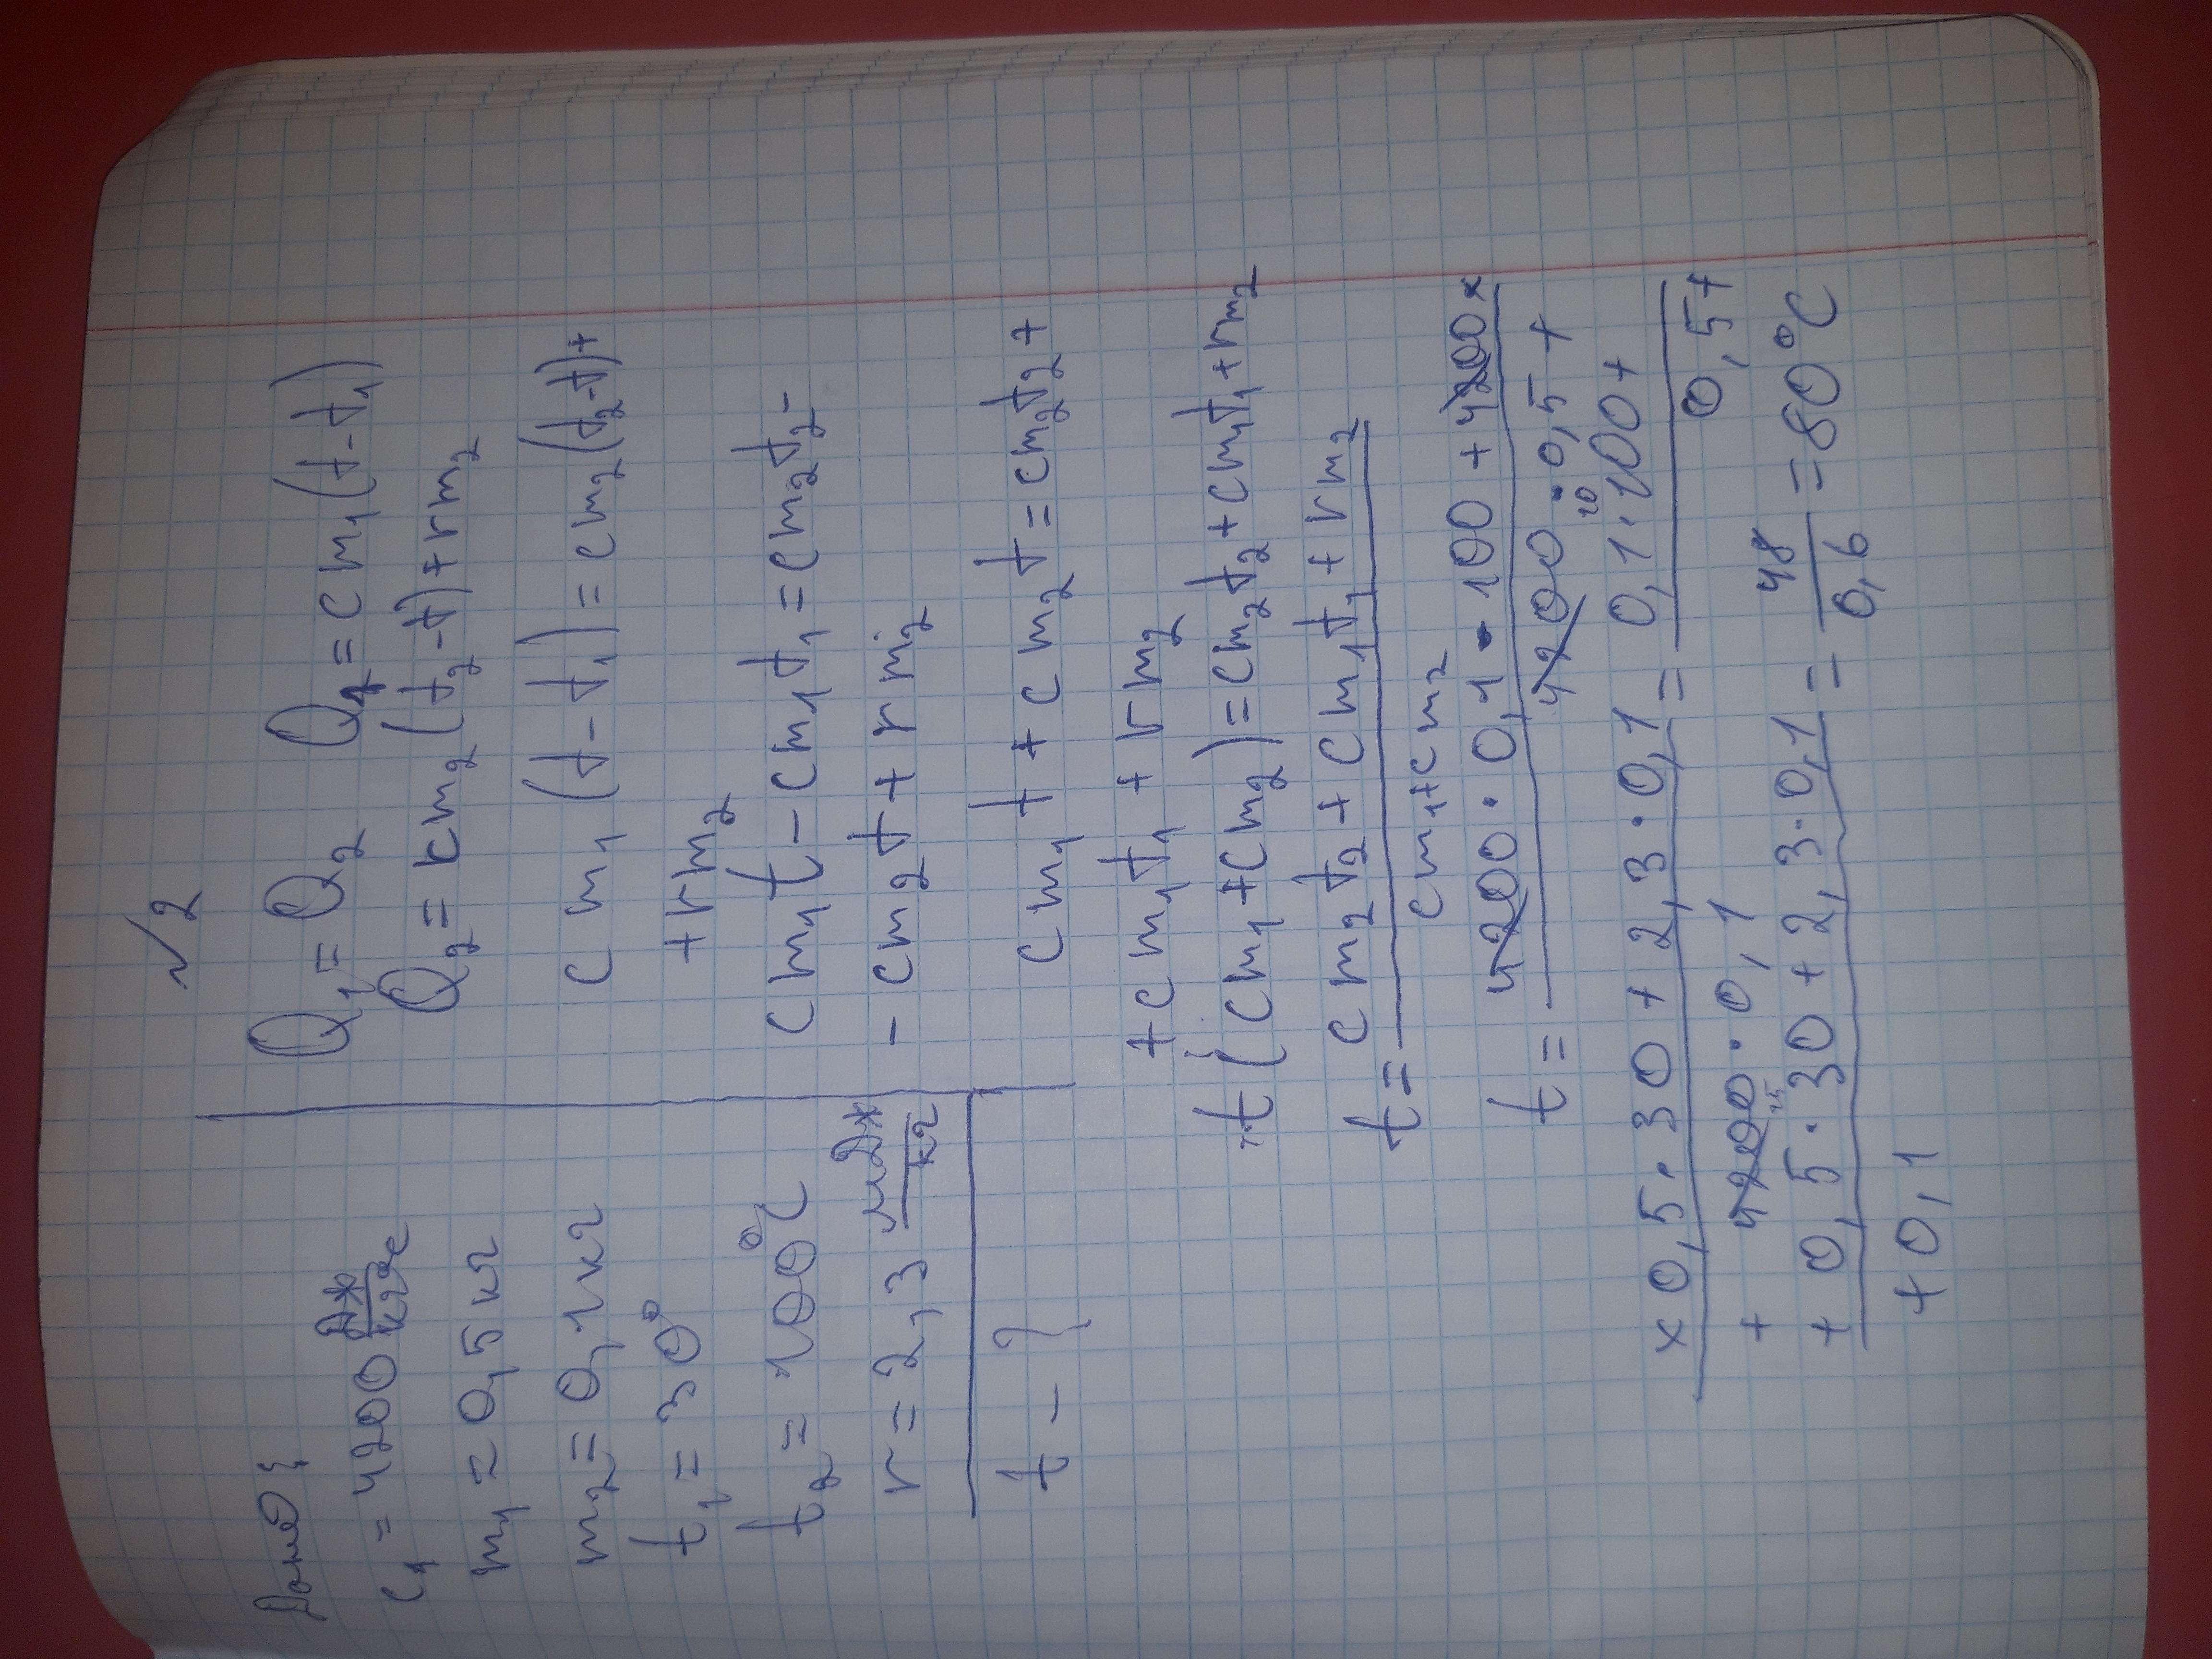 √2
Дано:
c₁ = 4200 Дж/кг°с
m₁ = 0,5 кг
m₂ = 0,1 кг
t₁ = 30°
t₂ = 100°C
r = 2,3 мДж/кг
t - ?
Q₁ = Q₂ Q₁ = cm₁(t-t₁)
Q₂ = cm₂(t₂-t)+rm₂
cm₁(t-t₁) = cm₂(t₂-t)+
+rm₂
cm₁t - cm₁t₁ = cm₂t₂-
- cm₂t + rm₂
cm₁t + cm₂t = cm₂t₂+
+cm₁t₁ + rm₂
t(cm₁+cm₂)=cm₂t₂+cm₁t₁+rm₂
t = (cm₂t₂+cm₁t₁+rm₂)/(cm₁+cm₂)
t = 4200·0,1·100+4200×
4200·0,5+
×0,5·30+2,3·0,1 = 0,1·100+
+4200·0,1 0,5+
+0,5·30+2,3·0,1 = 48/0,6 = 80°C
+0,1